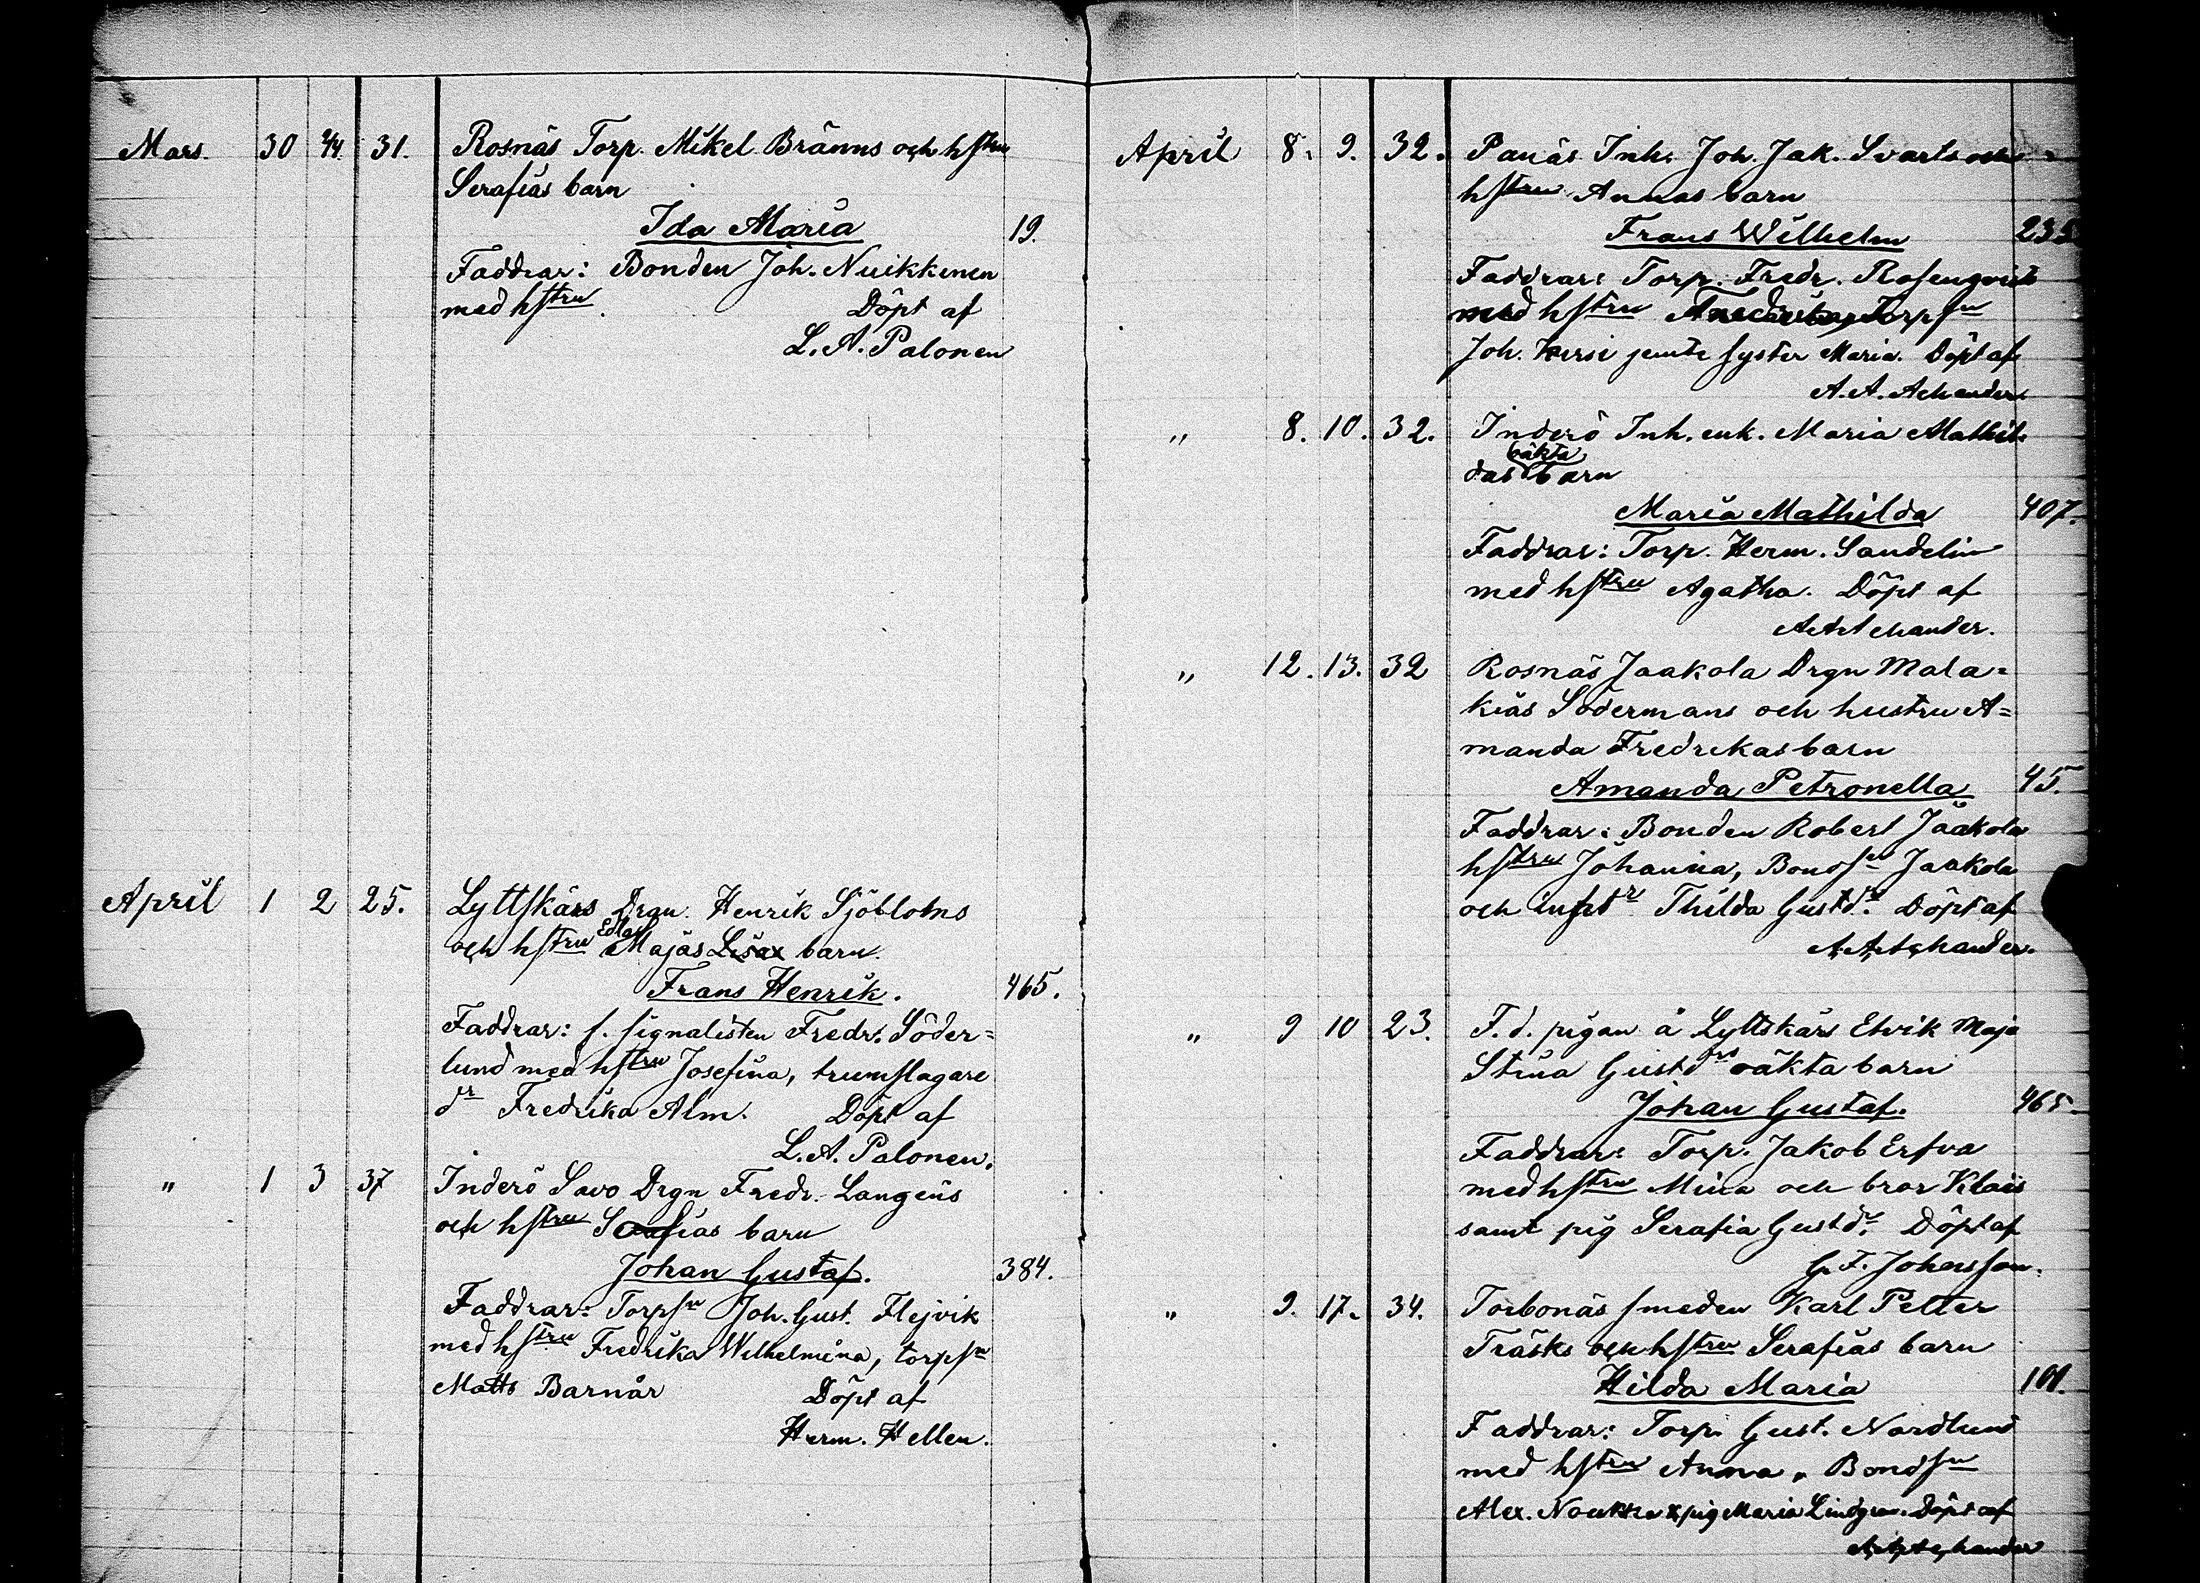 Mars. 30 4/4. 31. Rosnäs Torp. Mikel Bränns och hstru
Serafias barn
Ida Maria 19.
Faddrar: Bonden Joh. Nuikkinen
med hstru. Döpt af
L. A. Palonen
April 1 2 25. Lyttskärs Drgn. Henrik Sjöbloms
och hstru Edla Majas Lisas barn.
Frans Henrik. 465.
Faddrar: f. signalisten Fredr. Söder=
lund med hstru Josefina, trumslagare
dr Fredrika Alm. Döpt af
L. A. Palonen.
" 1 3 37 Inderö Savo Drgn Fredr. Langens
och hstru Serafias barn
Johan Gustaf. 384.
Faddrar: Torpsn Joh. Gust. Flejvik
med hstru Fredrika Wilhelmina, torpsn
Matts Barnår Döpt af
Herm. Hellen.
April 8. 9. 32. Panäs Inh. Joh. Jak. Svarts och
hstru Annas barn
Frans Wilhelm
Faddrar: Torp. Fredr. Rosenqvist
med hstru Torpsn
Joh. jemte syster Maria. Döpt af
A. A. Achander
" 8. 10. 32. Inderö Inh. enk. Maria Mathil-
das oäkta barn
Maria Mathilda 407.
Faddrar: Torp. Herm. Sandelin
med hstru Agatha. Döpt af
A. A. Achander.
" 12. 13. 32 Rosnäs Jaakola Drgn Mala=
kias Södermans och hustru A=
manda Fredrikas barn
Amanda Petronella 45.
Faddrar: Bonden Robert Jaakola
hstru Johanna, Bondsn Jaakola
och Thilda Gustdr. Döpt af
A. A. Achander.
" 9 10 23. F. d. pigan å Lyttskärs Elvik Maja
Stina Gustdrs oäkta barn
Johan Gustaf. 465.
Faddrar: Torp. Jakob Erfva
med hstru Mina och bror Klas
samt pig Serafia Gustdr. Döpt af
G. F. Johansson.
" 9. 17. 34. Torbonäs smeden Karl Petter
Träsks och hstru Serafias barn
Hilda Maria 101.
Faddrar: Torp. Gust. Nordlund
med hstru Anna, Bondsn
Alex. Noukka & pig Maria Lindgren. Döpt af
A. A. Achander